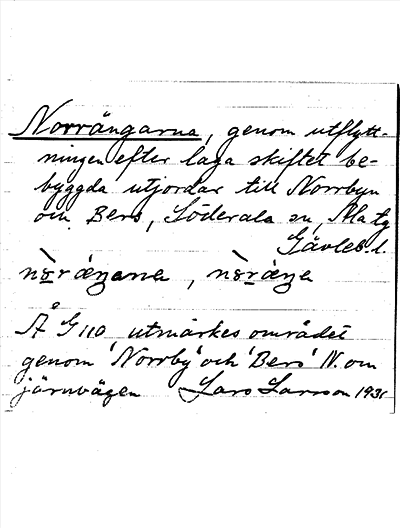 Norrängarna, genom utflytt-
ningen efter laga skiftet be-
byggda utjordar till Norrbyn
om Bers, Söderala sn, Ala tg
Gävleb. l.
nòrǽŋana, nòrǽŋa
Å G 110 utmärkes området
genom 'Norrby' och 'Bers' N. om
järnvägen Lars Larsson 1931